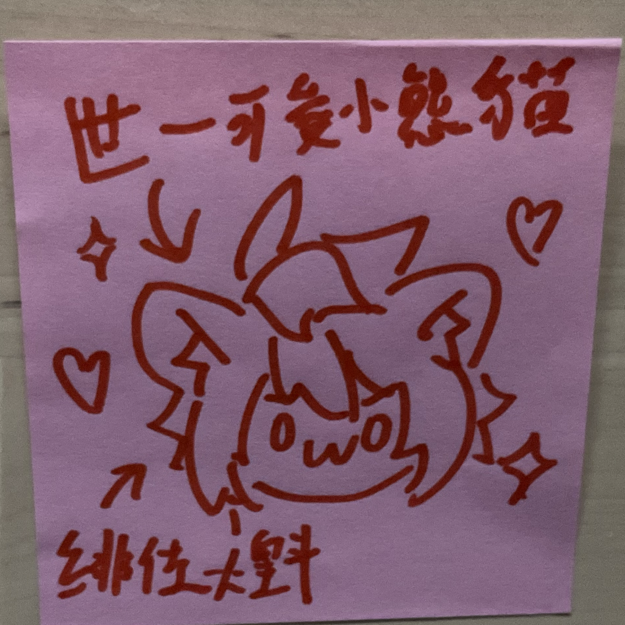 世一可爱小熊猫
owo
绯佐大